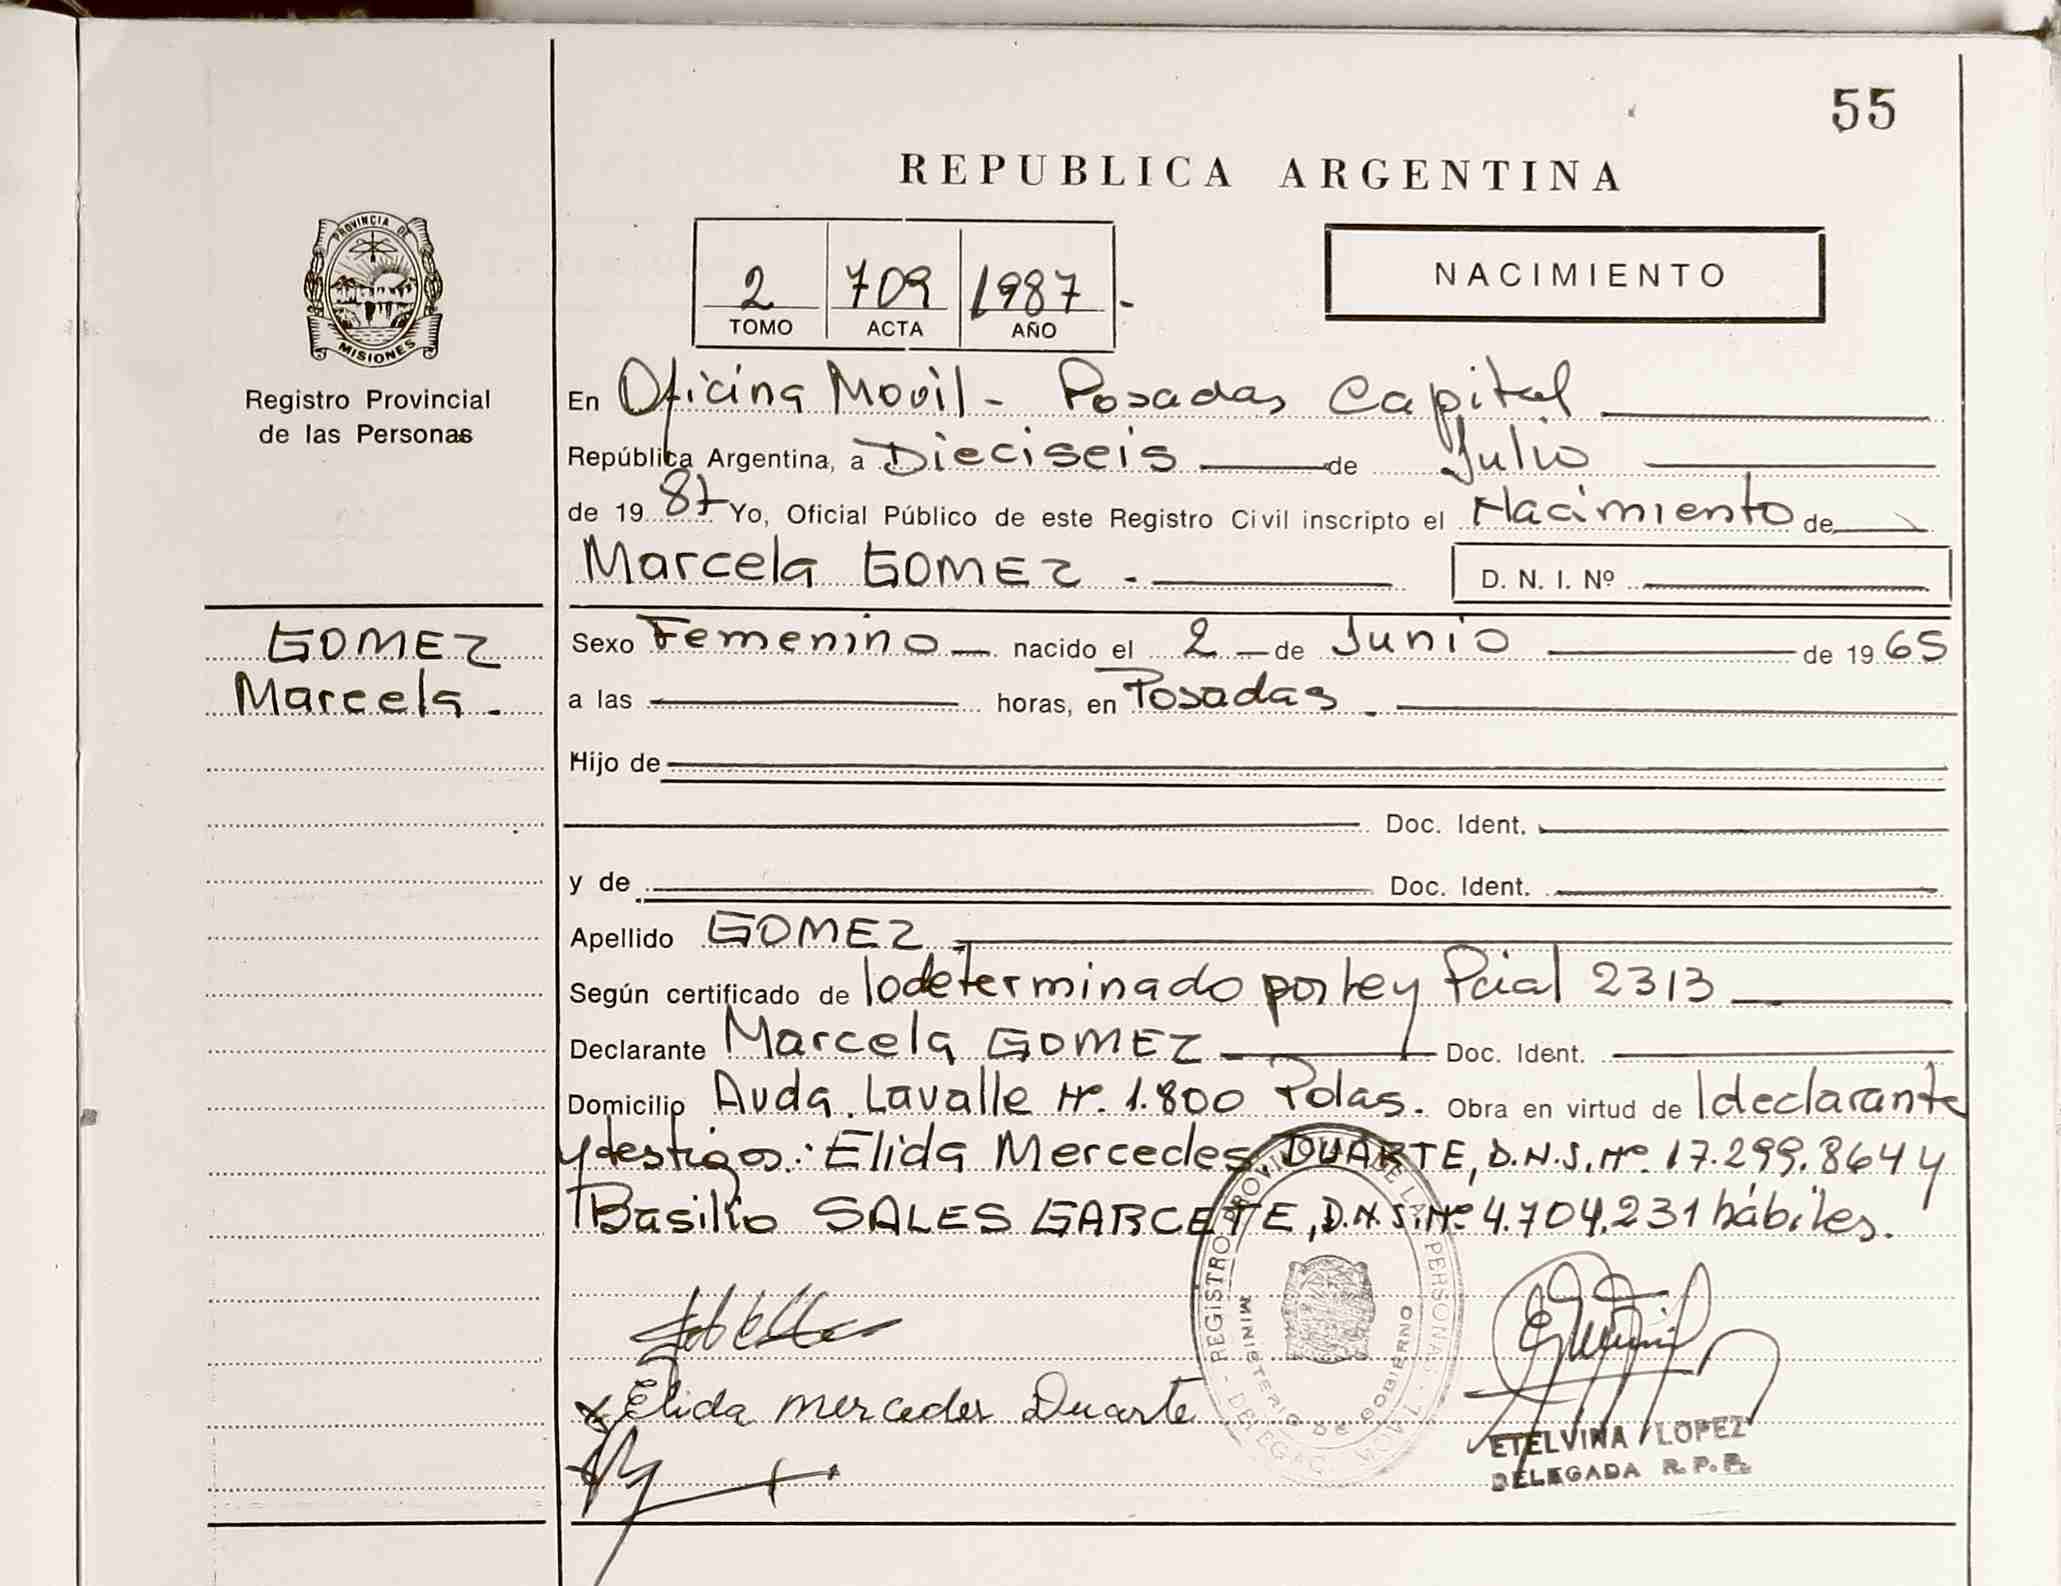 55
REPUBLICA ARGENTINA
PROVINCIA DE
MISIONES
Registro Provincial
de las Personas
2 709 1987.-
TOMO ACTA AÑO
NACIMIENTO
En Oficina Movil - Posadas Capital
República Argentina, a Dieciseis de Julio
de 19 87 Yo, Oficial Público de este Registro Civil inscripto el Nacimiento de
Marcela GOMEZ .- D. N. I. Nº
GOMEZ
Marcela.
Sexo Femenino nacido el 2 de Junio de 19 65
a las horas, en Posadas.
Hijo de
Doc. Ident.
y de Doc. Ident.
Apellido GOMEZ
Según certificado de lo determinado por ley Pcial 2313
Declarante Marcela GOMEZ Doc. Ident.
Domicilio Avda. Lavalle Nº. 1.800 Pdas. Obra en virtud de l declarante
y testigos: Elida Mercedes DUARTE, D.N.I. Nº. 17.299.864 y
Basilio SALES GARCETE, D.N.I. Nº 4.704.231 hábiles.
REGISTRO PROVINCIAL DE LAS PERSONAS - DELEGAC. MOVIL -
MINISTERIO DE GOBIERNO
Elida Mercedes Duarte
ETELVINA LOPEZ
DELEGADA R. P. P.